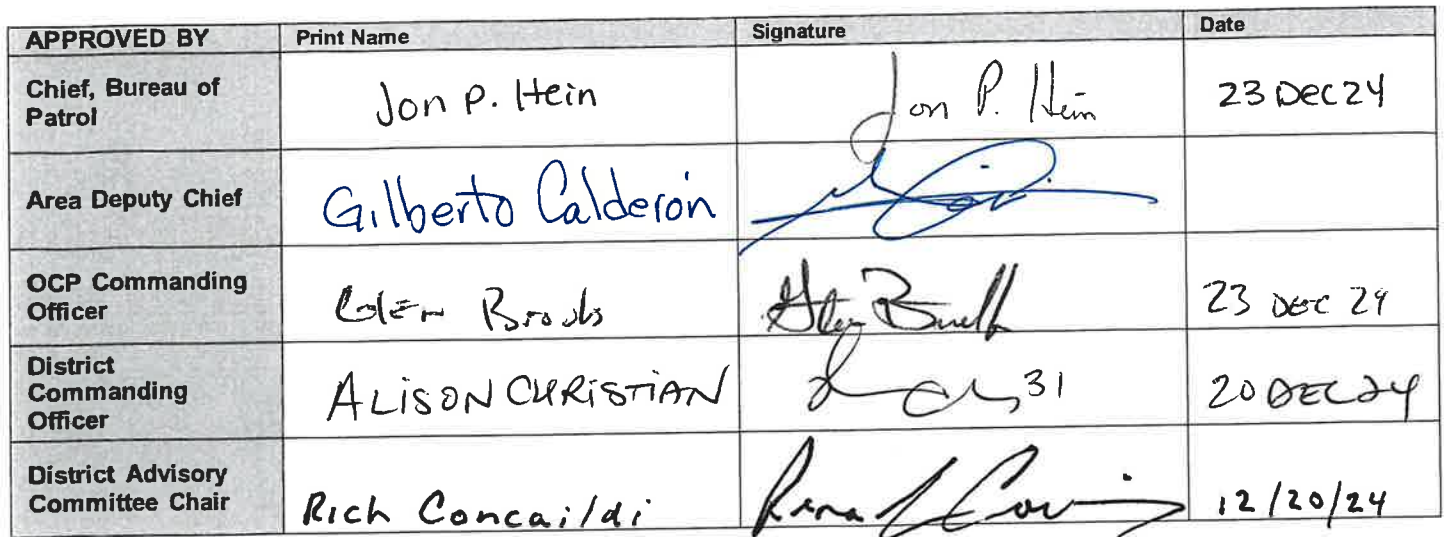 APPROVED BY Print Name Signature Date
Chief, Bureau of
Patrol
Jon P. Hein Jon P. Hein 23 DEC 24
Area Deputy Chief Gilberto Calderón
OCP Commanding
Officer
Glen Brooks 23 DEC 24
District
Commanding
Officer
ALISON CHRISTIAN 31 20 DEC 24
District Advisory
Committee Chair
Rich Concaildi 12/20/24